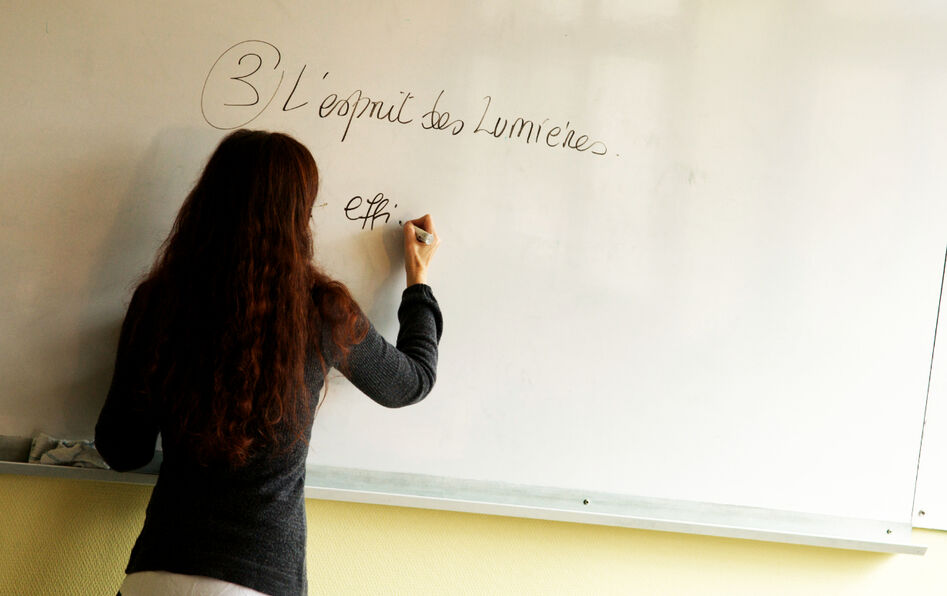 3 L'esprit des Lumières.
effi